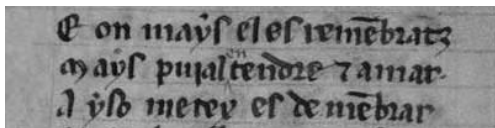 E on mays el es remēbratz
Mays puial en tendre ⁊ amar.
A yso mercey es de mēbrar